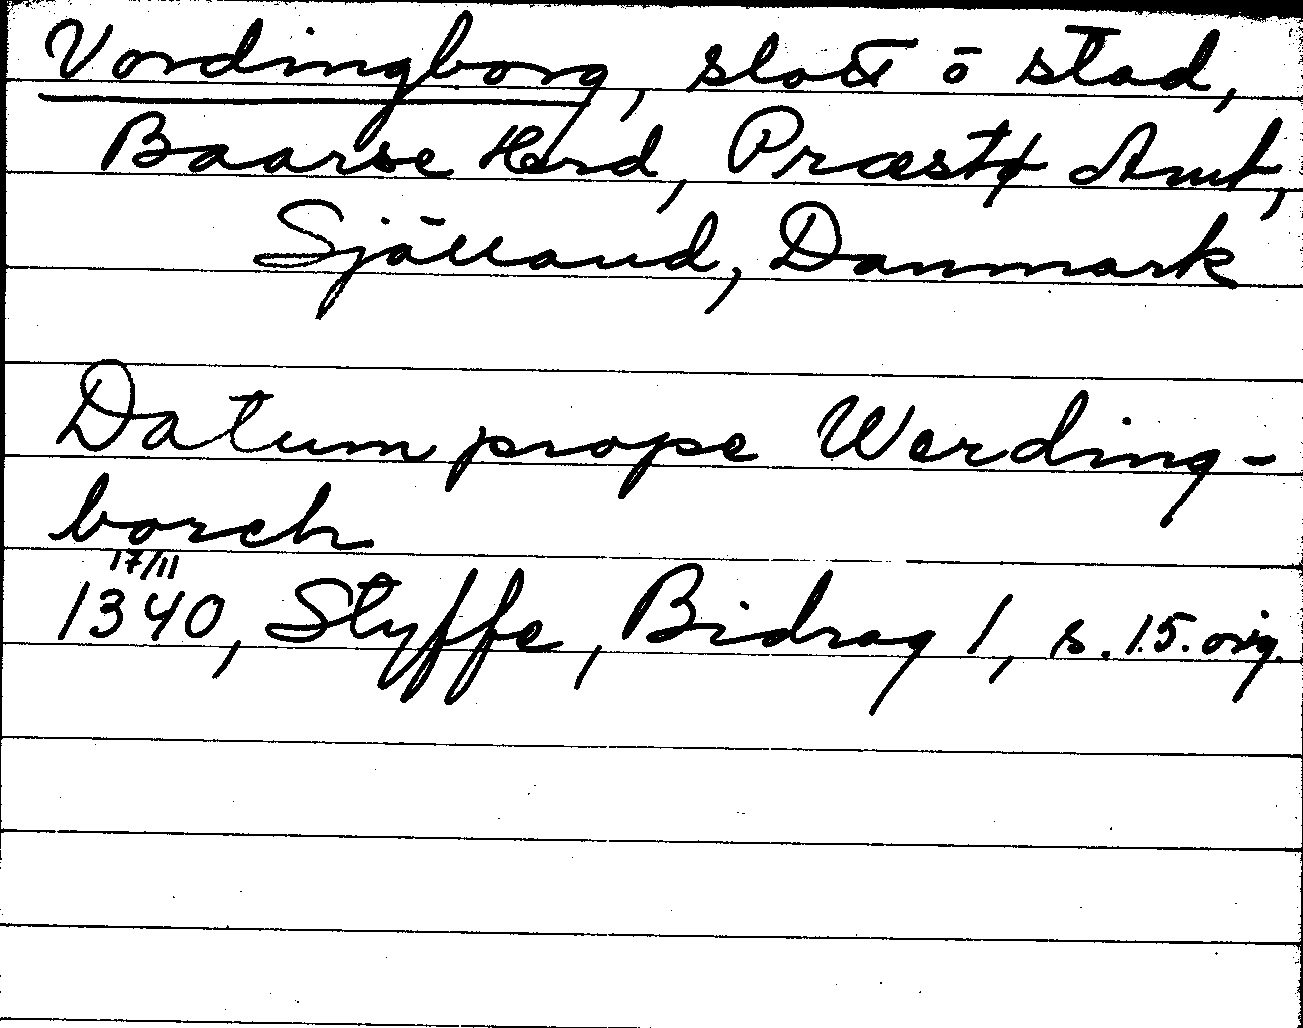 Vordingborg, slott o stad,
Baarse Herd, Præstø Amt,
Sjālland, Danmark
Datum prope Werding-
borch
17/11
1340, Styffe, Bidrag 1, s. 15. orig.